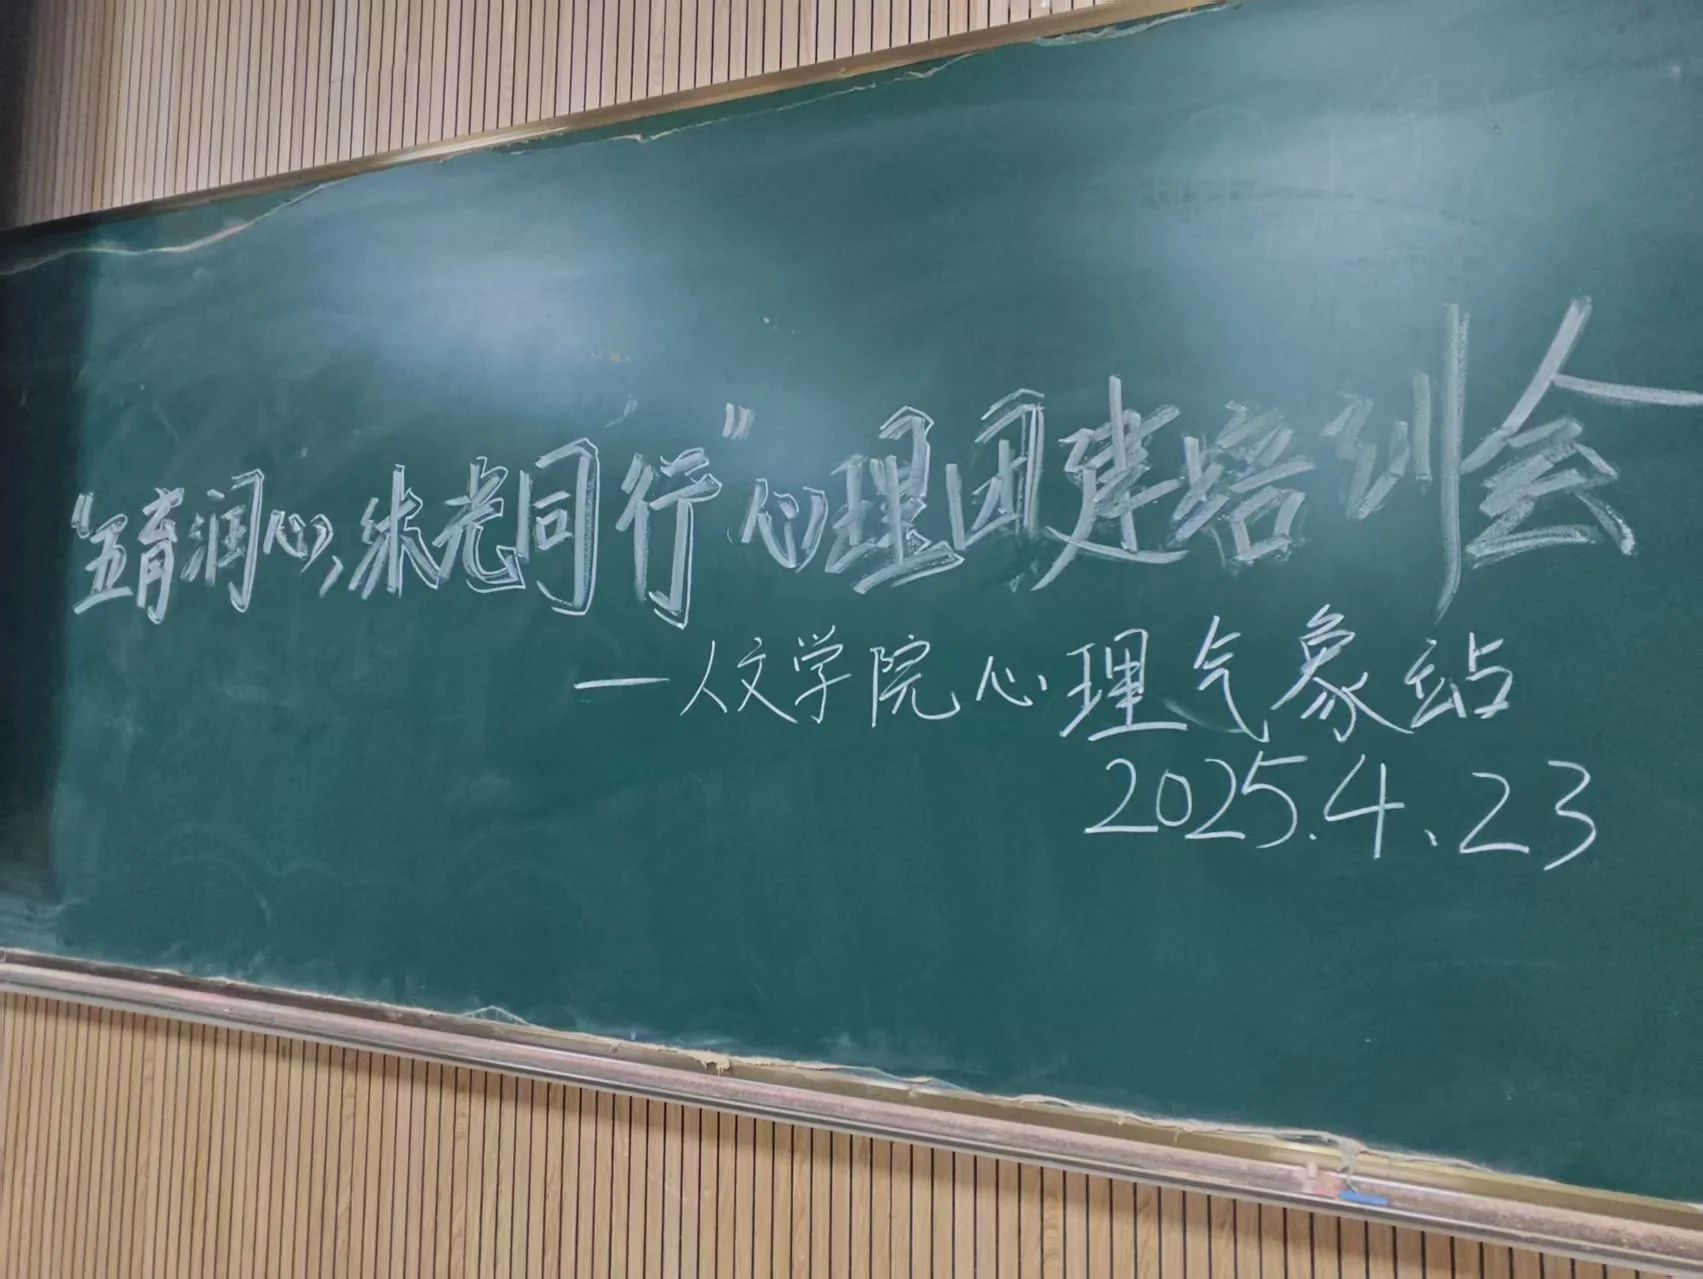 “五育润心，朱光同行”心理团建培训会
—人文学院心理气象站
2025.4.23